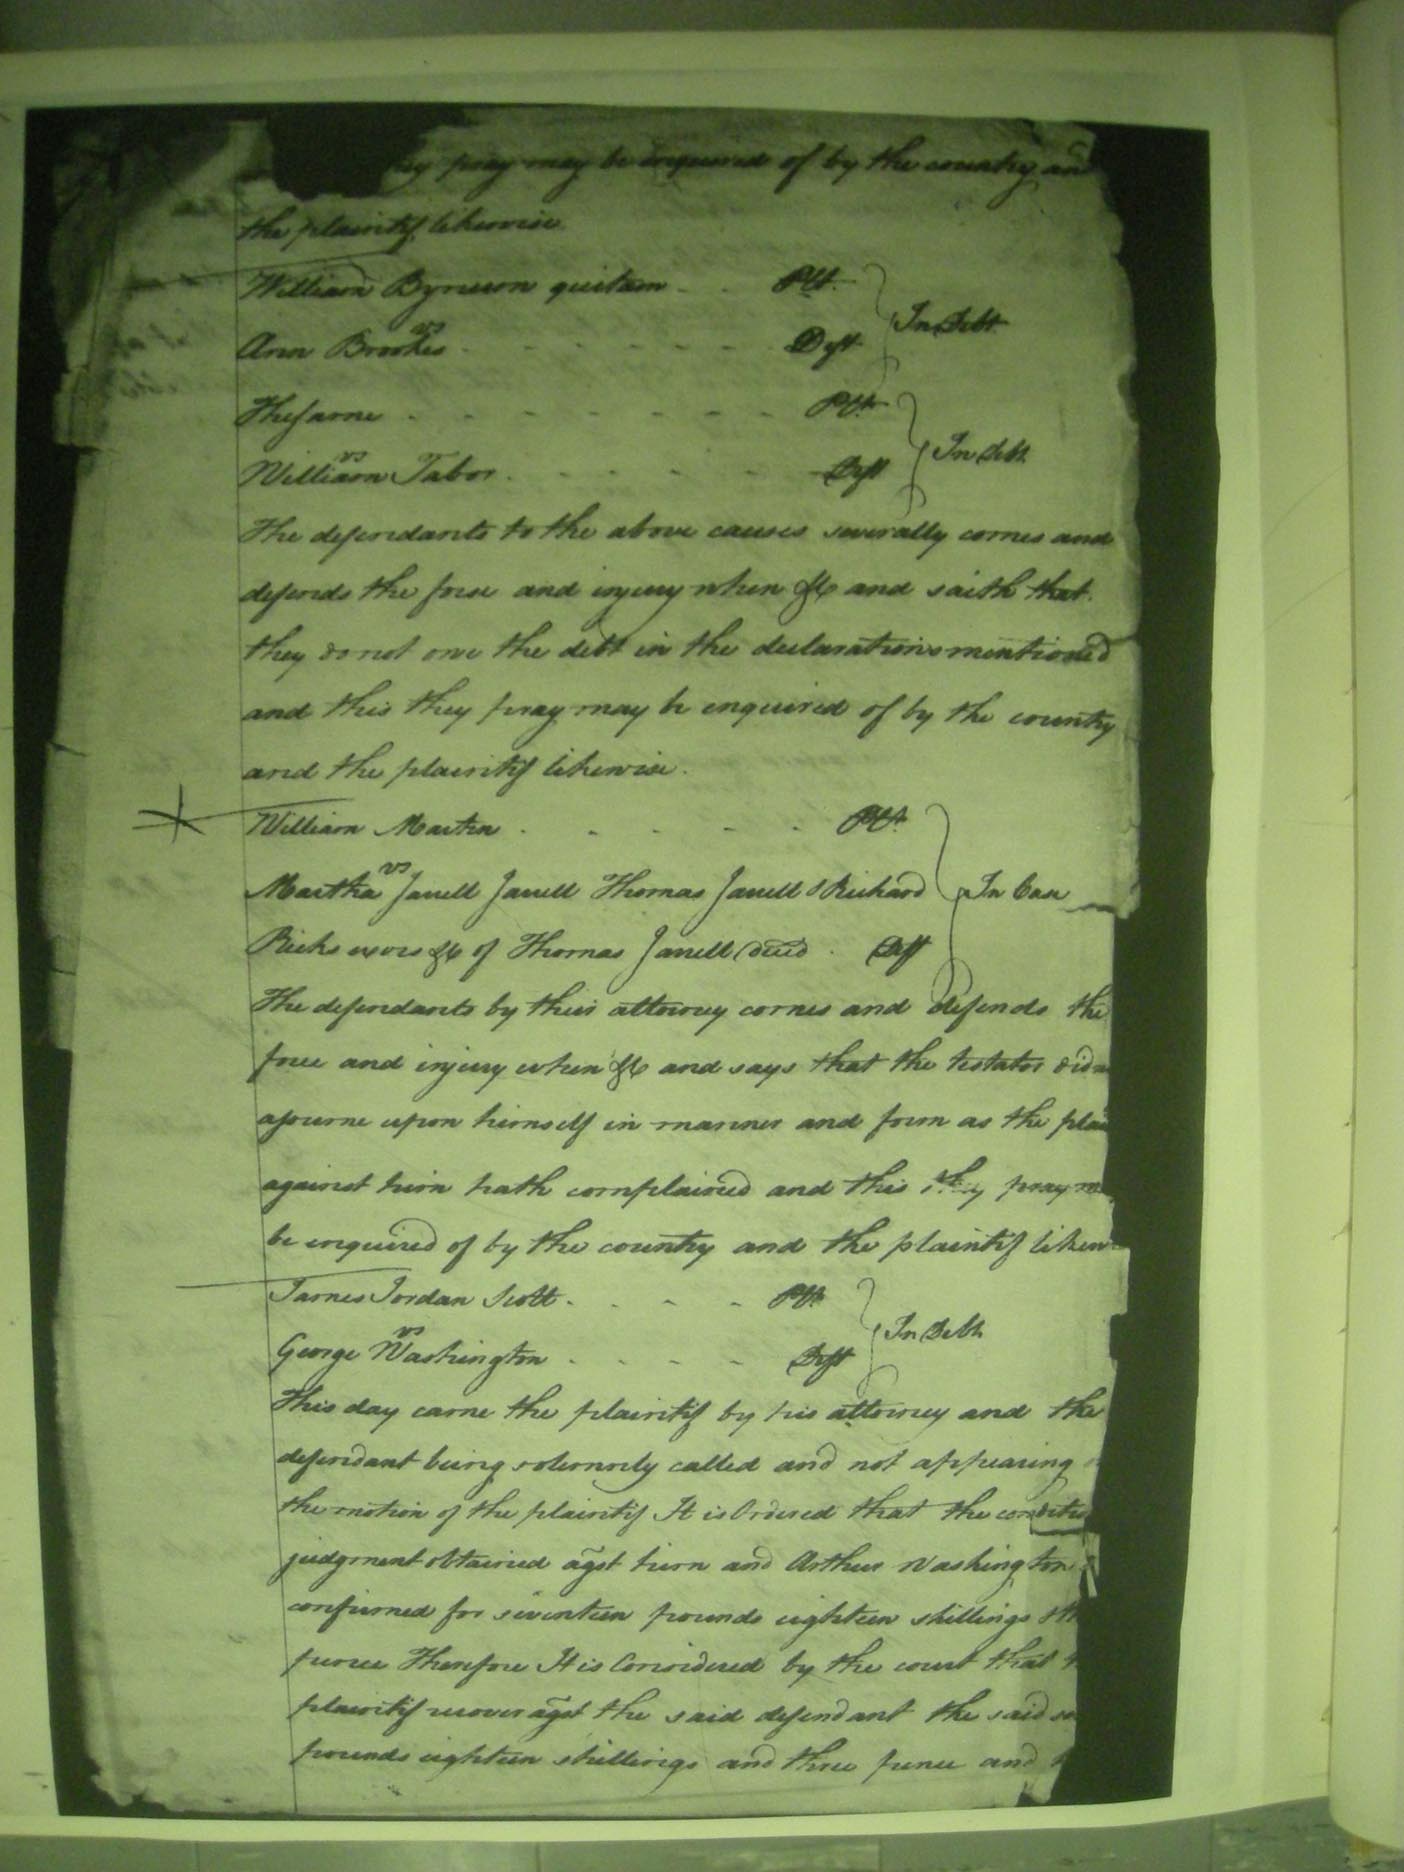 pray may be enquired of by the country and
the plaintif likewise
William Bynum quitam - - Plt.
vs
Ann Brookes - - - - - - Deft
In Debt
The same - - - - - - - Plt
vs
William Tabor - - - - - Deft
In Debt
The defendants to the above causes severally comes and
defends the force and injury when &c and saith that
they do not owe the debt in the declarations mentioned
and this they pray may be enquired of by the country
and the plaintif likewise.
William Martin - - - - - Plt
vs
Martha Jarrell Jarrell Thomas Jarrell & Richard
Ricks exors &c of Thomas Jarrell decd. Deft
In Case
The defendants by their attorney comes and defends the
force and injury when &c and says that the testator did
assume upon himself in manner and form as the
against him hath complained and this they pray
be enquired of by the country and the plaintif
James Jordan Scott - - - - Plt
vs
George Washington - - - - Deft
In Debt
This day came the plaintif by his attorney and the
defendant being solemnly called and not appearing
the motion of the plaintif It is Ordered that the
judgment obtained agst him and Arthur Washington
confirmed for seventeen pounds eighteen shillings
pence Therefore It is Considered by the court that
plaintif recover agst the said defendant the said
pounds eighteen shillings and three pence and